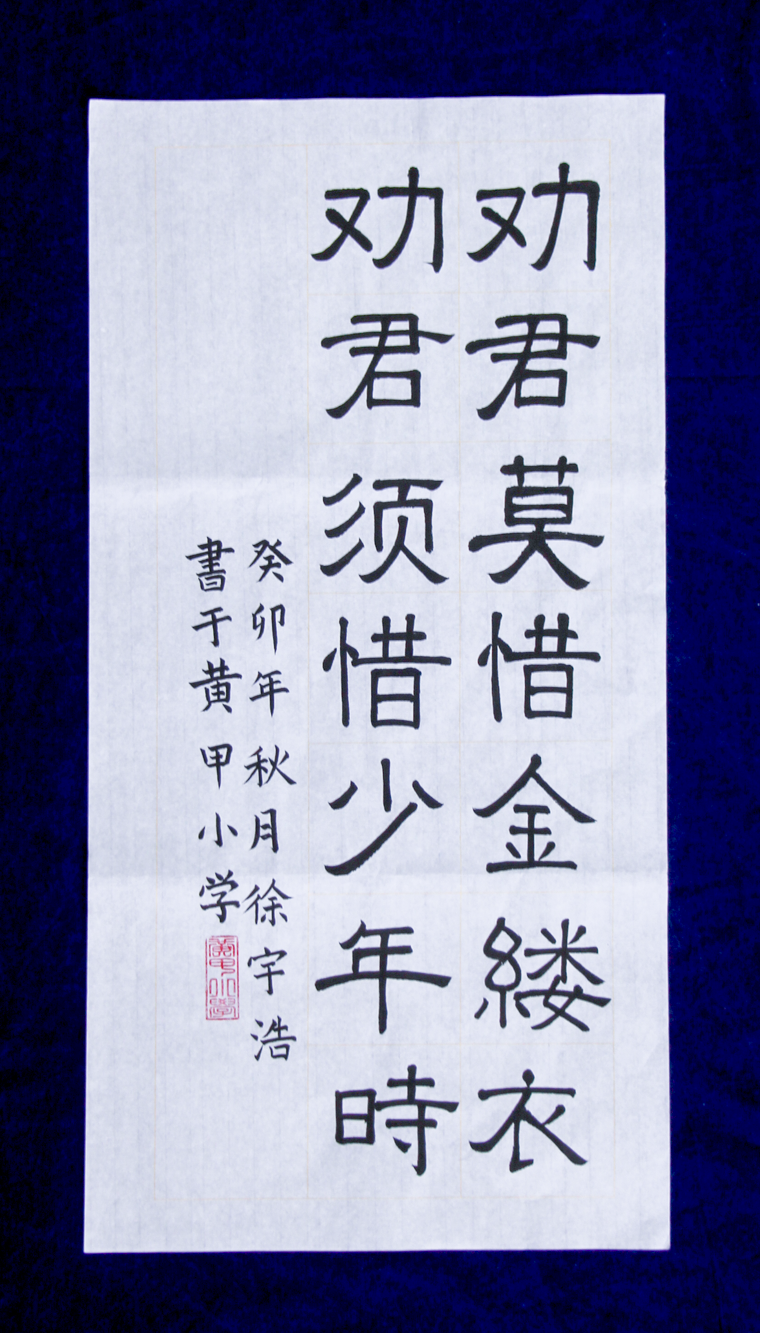 劝君莫惜金縷衣
劝君须惜少年時
癸卯年秋月徐宇浩
書于黄甲小学
黄甲小學